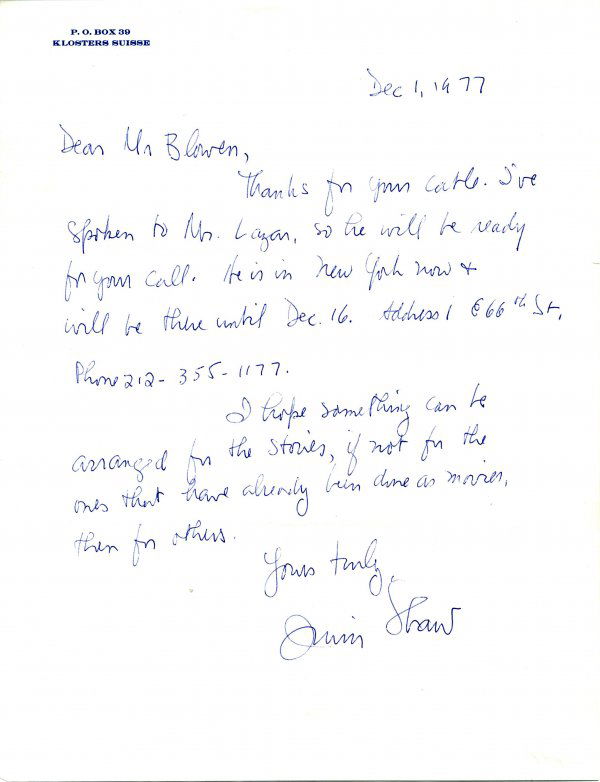 P. O. BOX 39
KLOSTERS SUISSE
Dec 1, 1977
Dear Mr Blowen,
Thanks for your cable. I've
spoken to Mr. Lazar, so he will be ready
for your call. He is in New York now +
will be there until Dec. 16. Address 1 E 66th St,
Phone 212-355-1177.
I hope something can be
arranged for the stories, if not for the
ones that have already been done as movies,
then for others.
Yours truly,
Irwin Shaw